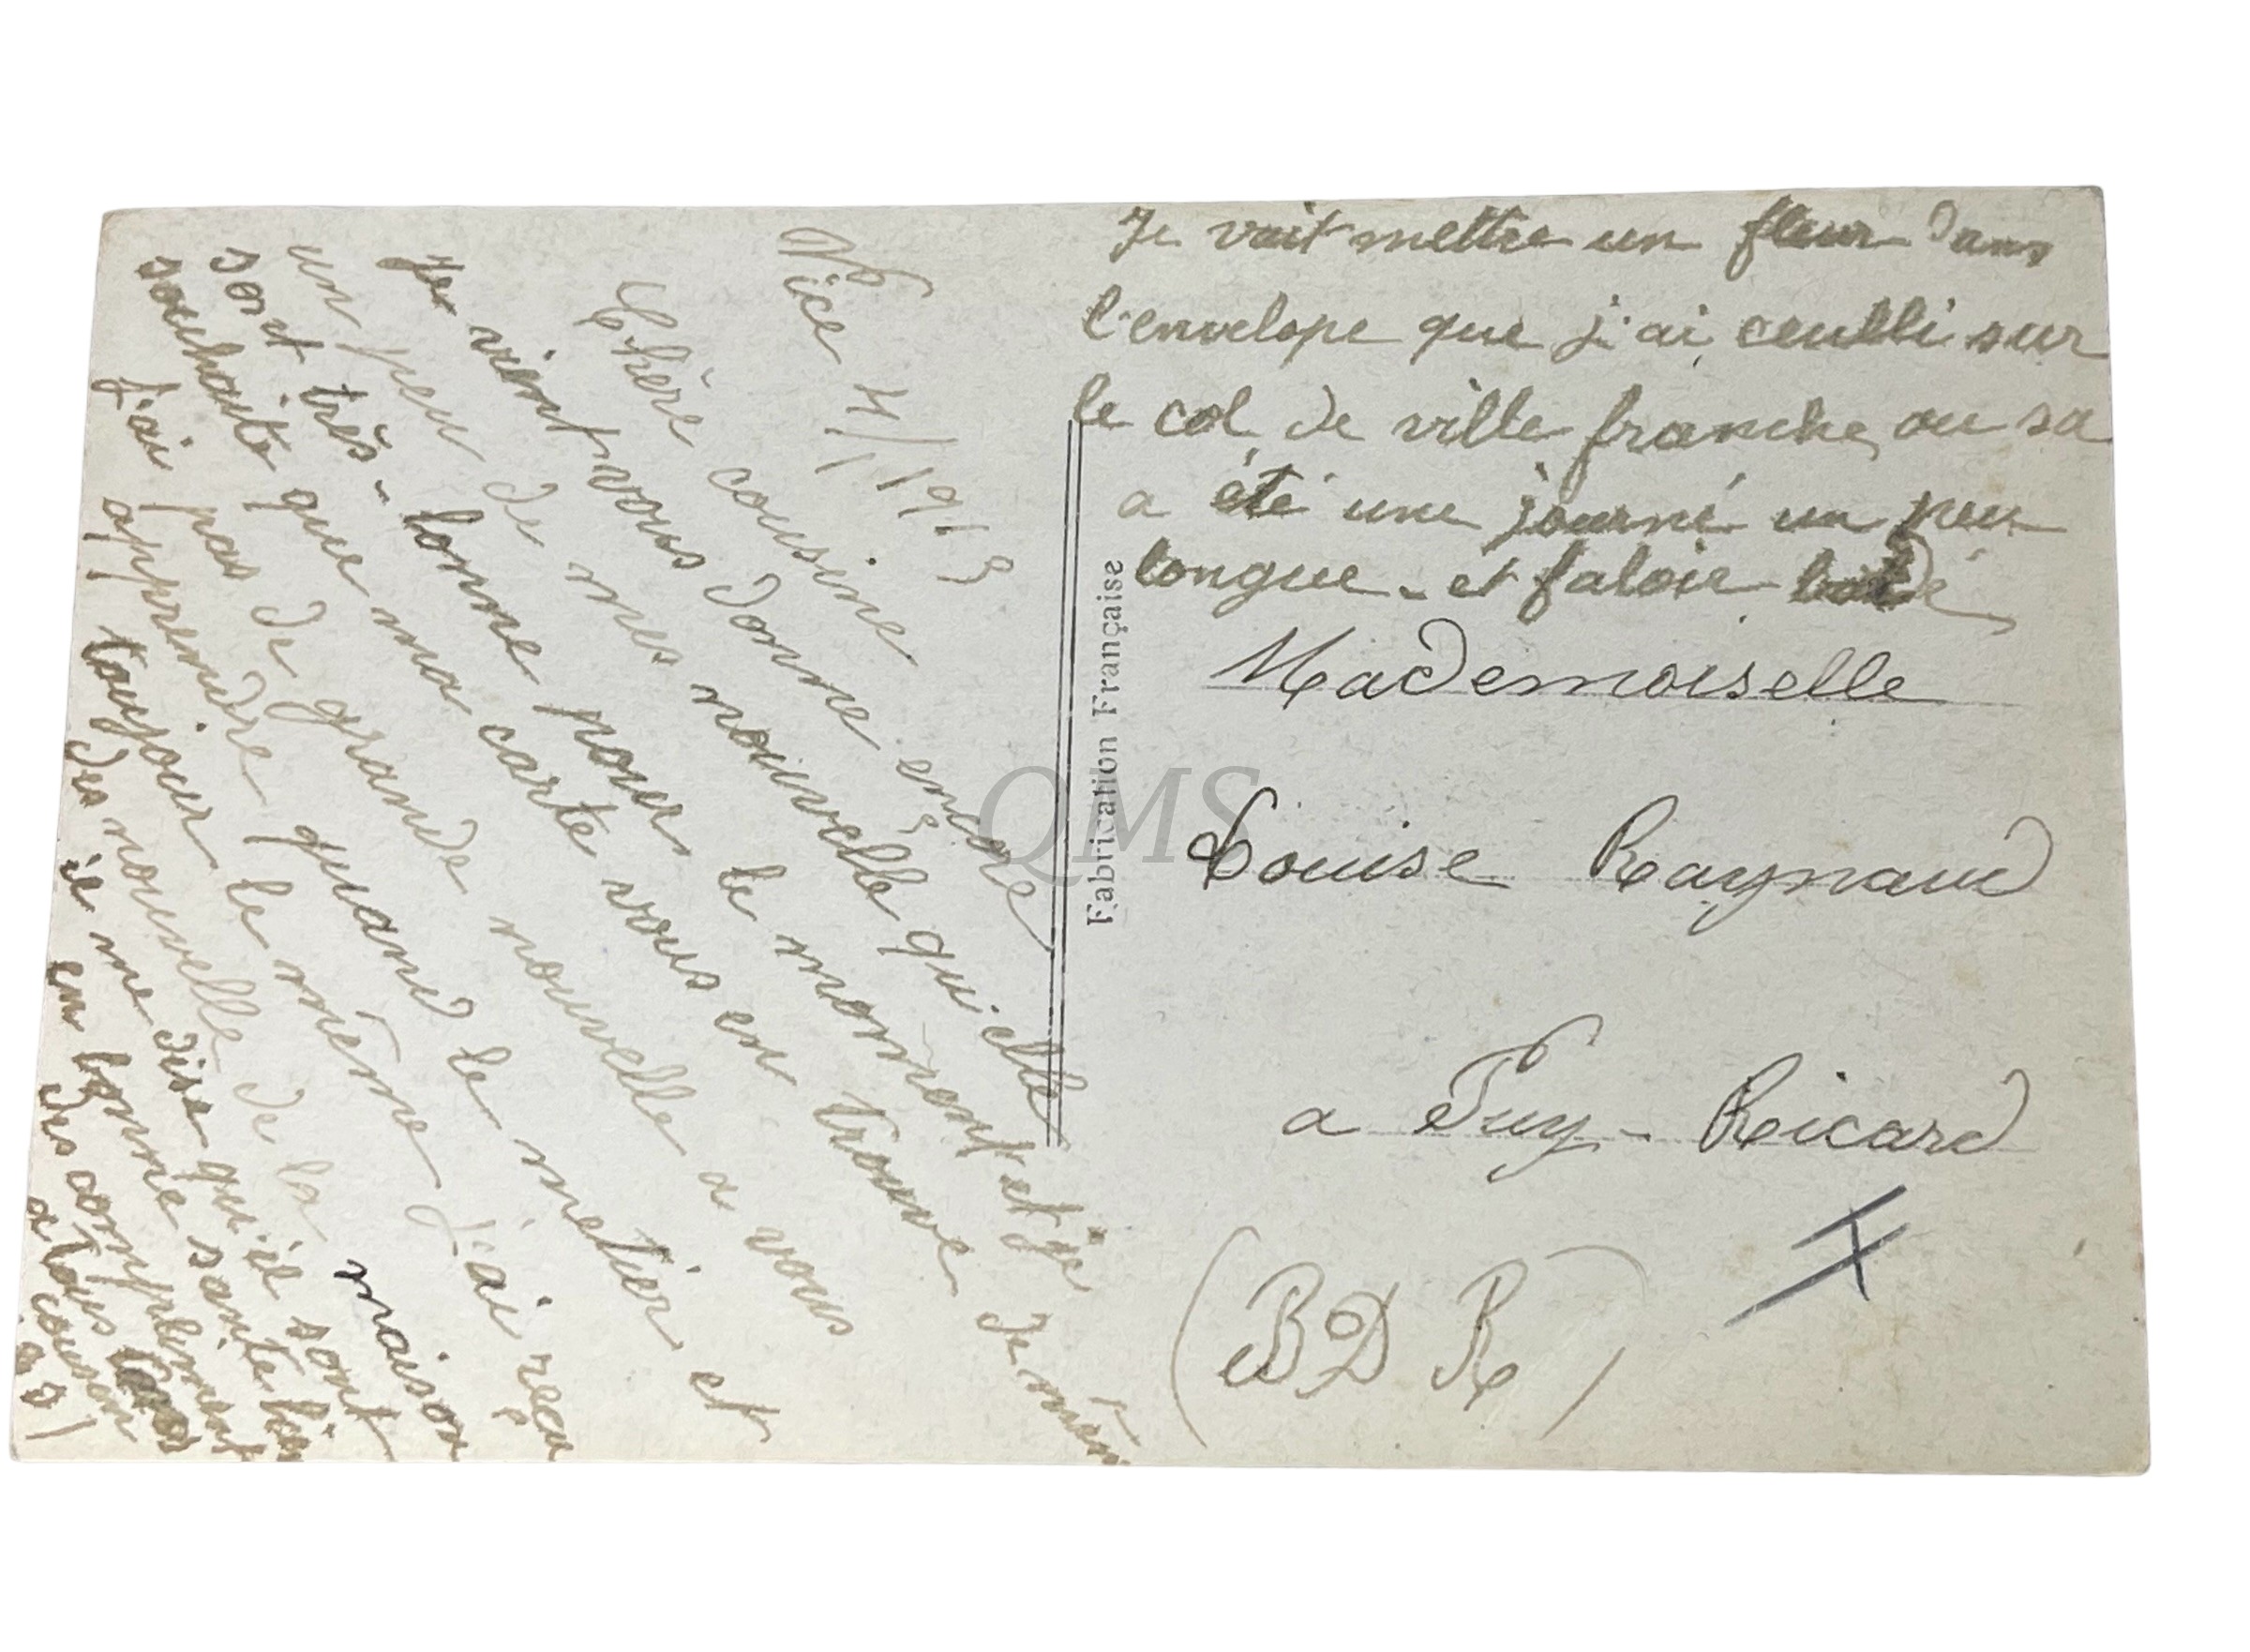 Nice 4/1 1913
Chère cousine
Je vient vous donne encore
un peu de mes nouvelle qui elle
sont très-bonne pour le moment et je
souhaite que ma carte vous en trouve de mêm
j'ai pas de grande nouvelle a vous
apprendre quand le metier et
toujour le même j'ai reçu
des nouvelle de la maison
il me dise qu'il sont
en bonne sante
des compliment
a tous
cousin
Je vait mettre un fleur dans
l'envelope que j'ai ceulli sur
le col de ville franche ou sa
a été une journé un peu
longue - et faloir
Mademoiselle
Louise Raynaud
a Puy-Ricard
(BDR)
Fabrication Française
QMS